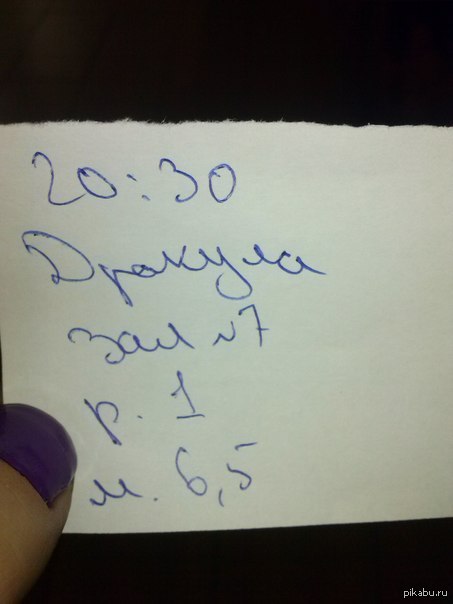 20:30
Дракула
зал №7
р. 1
м. 6,5
pikabu.ru